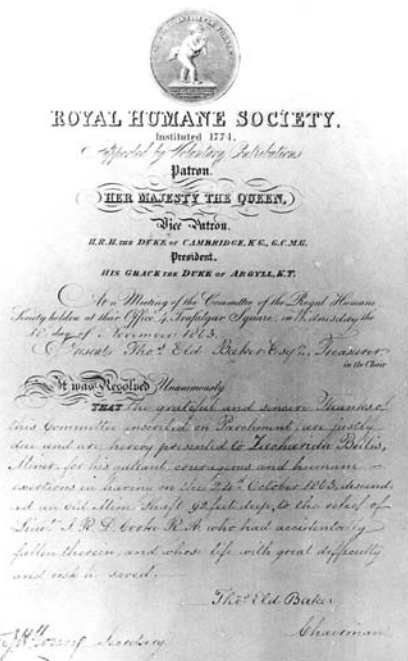 ROYAL HUMANE SOCIETY.
Instituted 1774.
Supported by Voluntary Contributions
Patron.
HER MAJESTY THE QUEEN,
Vice Patron.
H.R.H. THE DUKE OF CAMBRIDGE, K.G., G.C.M.G.
President.
HIS GRACE THE DUKE OF ARGYLL, K.T.
At a Meeting of the Committee of the Royal Humane
Society holden at their Office, 4, Trafalgar Square, on Wednesday the
day of November 1863.
Present Thos. Eld Baker Esqre., Treasurer
in the Chair
It was Resolved Unanimously
THAT the grateful and sincere Thanks of
this Committee inscribed on Parchment, are justly
due and are hereby presented to Zacharida
Miner, for his gallant, courageous and humane
exertions in having on the 24th October 1863, descend-
ed an old Mine Shaft 92 feet deep, to the relief of
Lieut. J. R. D. Cooke R.A. who had accidentally
fallen therein, and whose life with great difficulty
and risk he saved.
Thos. Eld Baker
Chairman
Secretary.